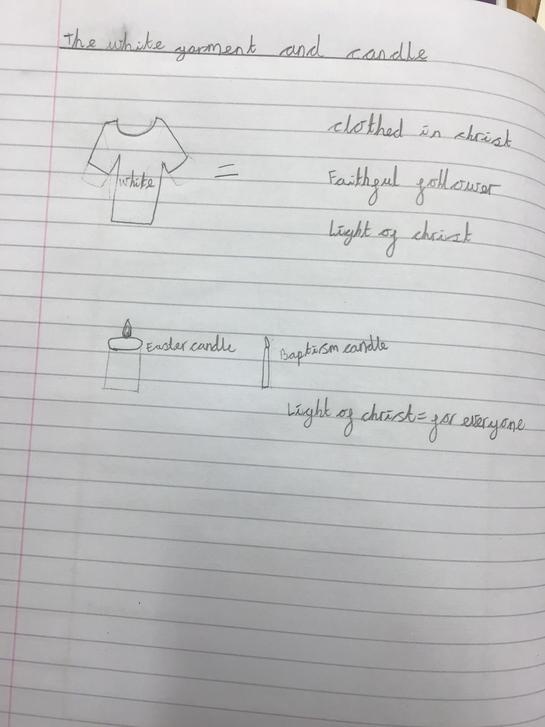 The white garment and candle
clothed in christ
white =
Faithful follower
Light of christ
Easter candle
Baptism candle
Light of christ = for everyone